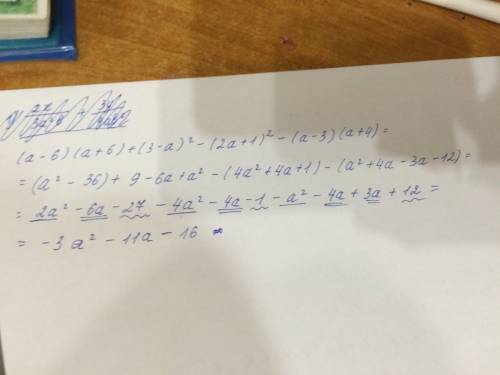 (a-6)(a+6)+(3-a)²-(2a+1)²-(a-3)(a+4)=
=(a²-36)+9-6a+a²-(4a²+4a+1)-(a²+4a-3a-12)=
=2a²-6a-27-4a²-4a-1-a²-4a+3a+12=
=-3a²-11a-16